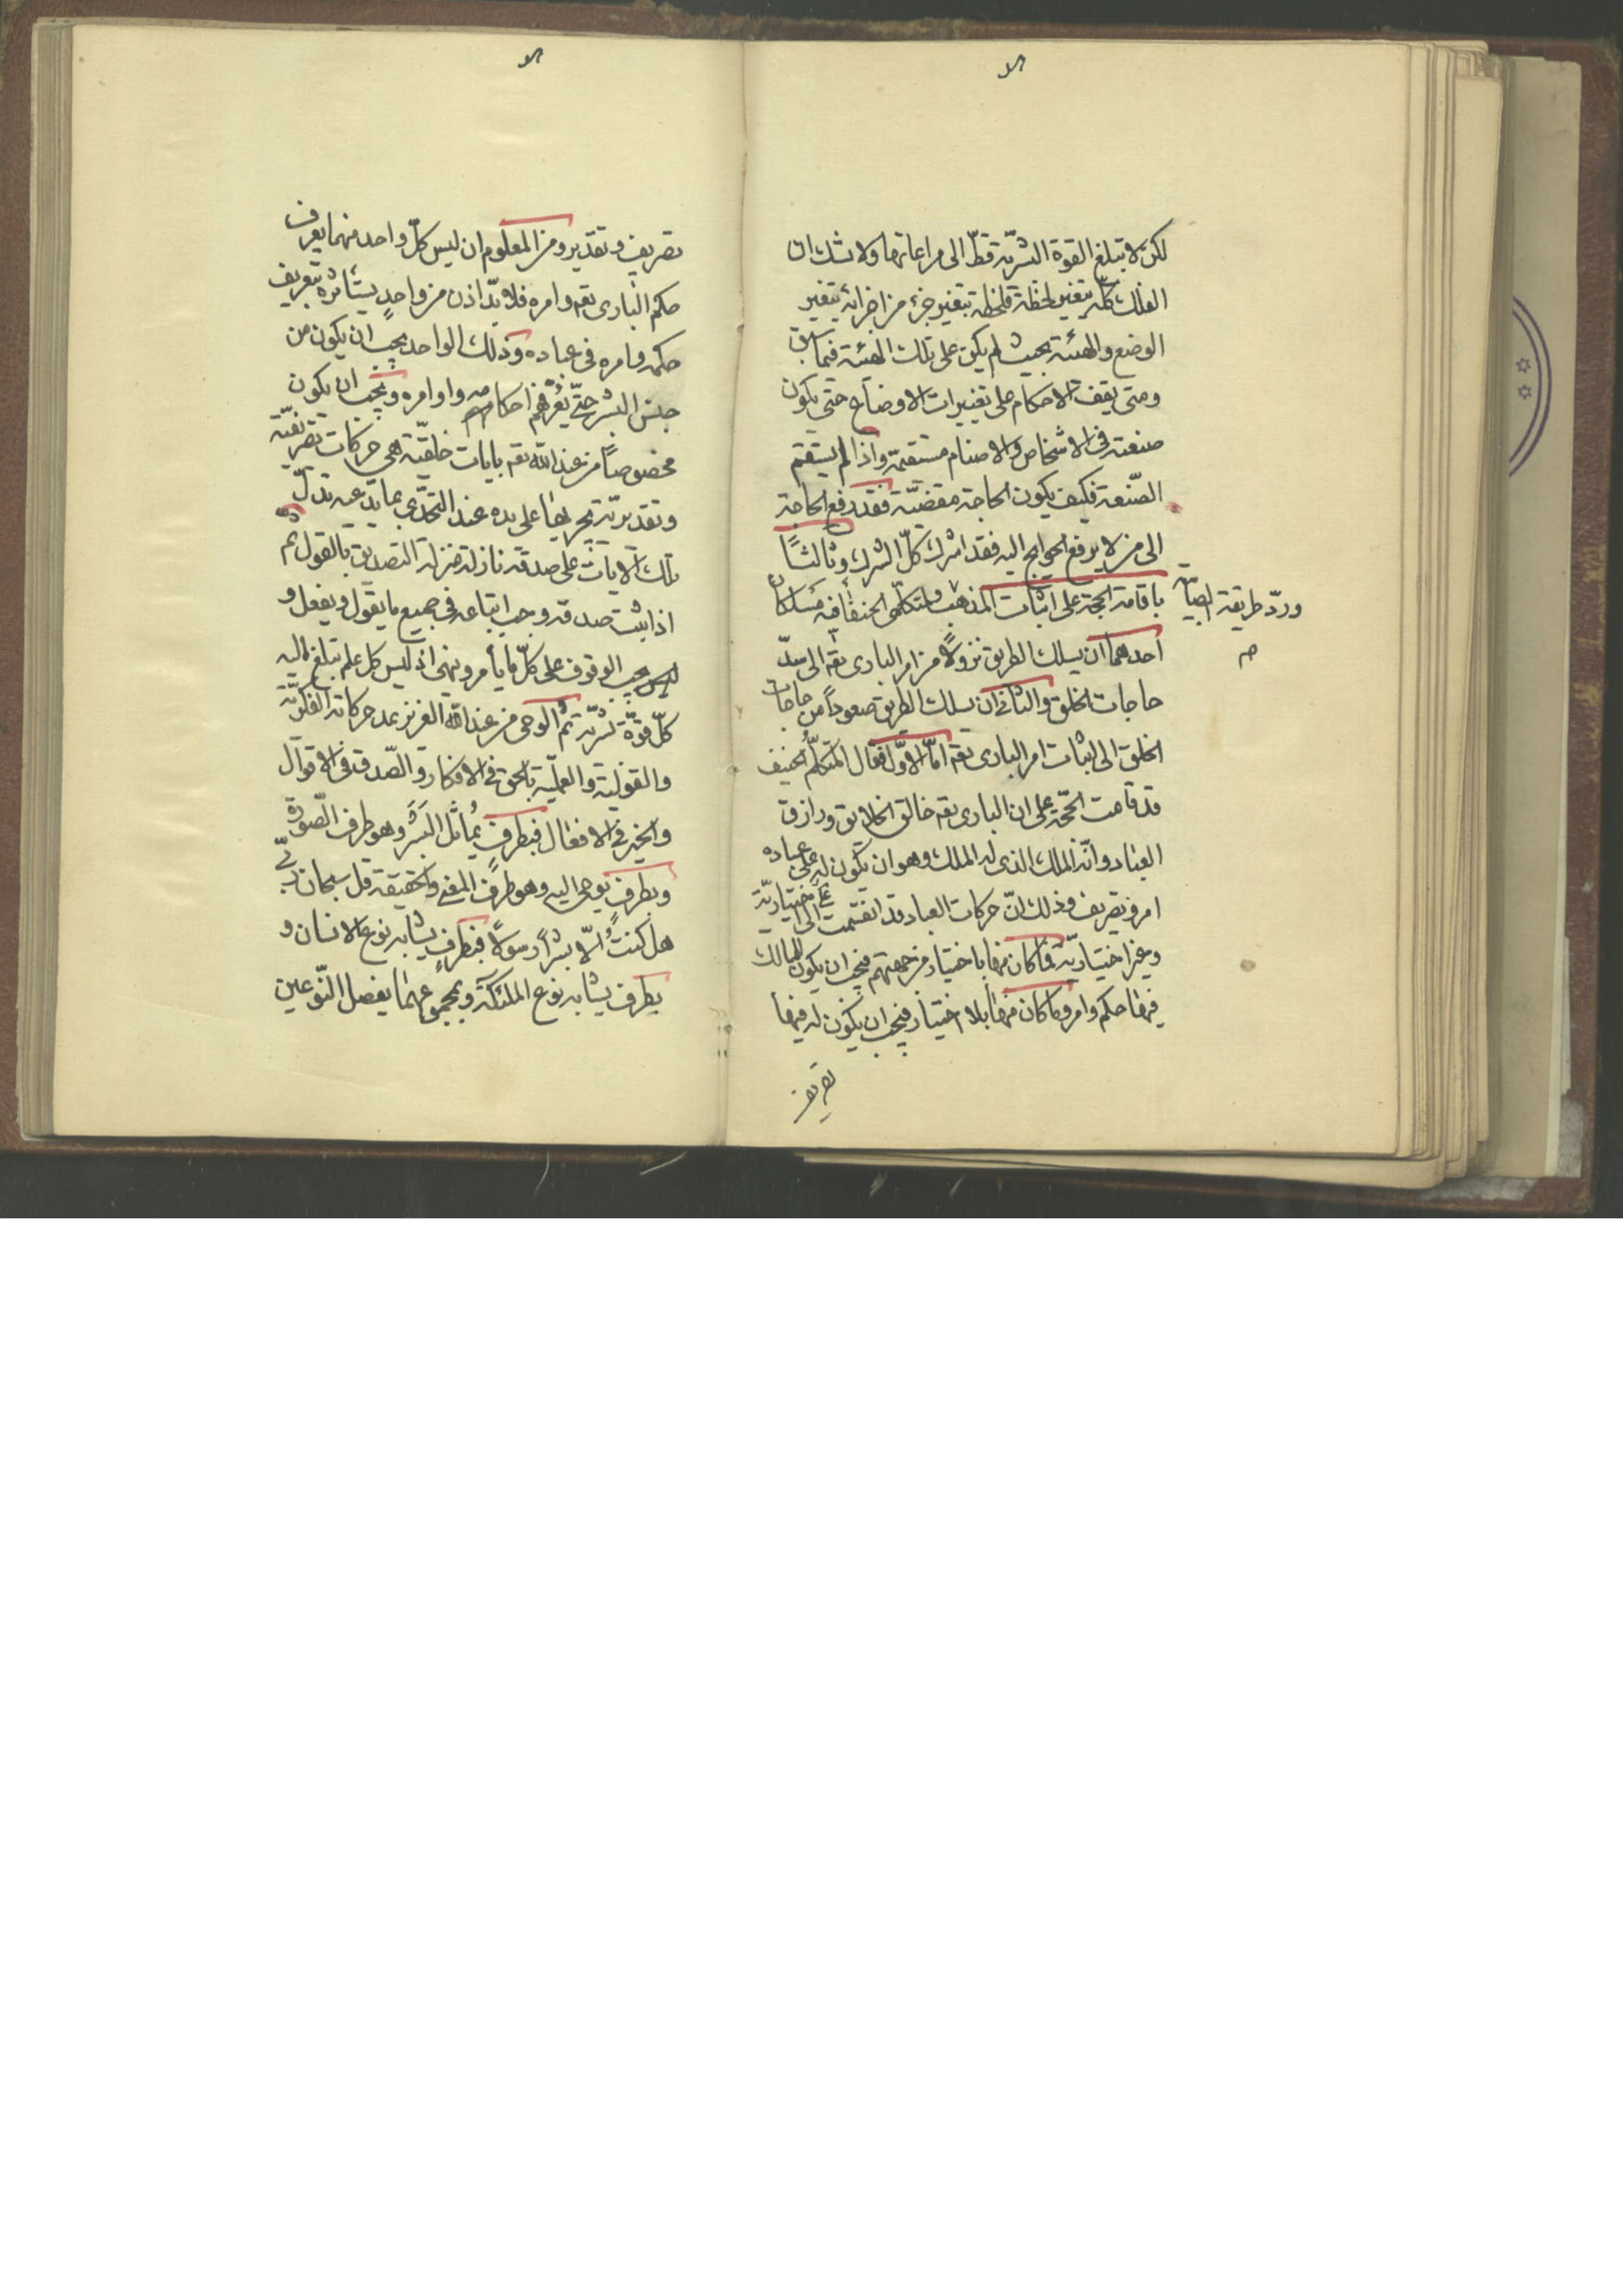 لكن لا تبلغ القوة البشرية قط الى مراعاتها ولا شك ان
الفلك كله يتغير لحظة فلحظة بتغير جزء من اجزائه بتغير
الوضع والهيئة بحيث لم يكن على تلك الهيئة فيما سبق
ومتى يقف الاحكام على تغييرات الاوضاع حتى يكون
صنعته فى الاشخاص والاصنام مستقيمة واذا لم يستقم
الصنعة فكيف يكون الحاجة مقضية فقد رفع الحاجة
الى من لا يرفع الحوايج اليه فقد اشرك كلّ الشرك وثالثاً
باقامة الحجة على اثبات المذهب ولمتكلمى الحنفا فيه مسلكان
وردّ طريقة الصبأ
احدهما ان يسلك الطريق نزولاً من امر البارى تعه الى سدّ
حاجات الخلق والثانى ان يسلك الطريق صعوداً من حاجات
الخلق الى اثبات امر البارى تعه امّا الاوّل فقال المتكلّم الحنيف
قد قامت الحجّة على ان البارى تعه خالق الخلايق ورازق
العباد وانّه الملك الذى له الملك وهو ان يكون له على عباده
امر وتصريف وذلك انّ حركات العباد قد انقسمت الى اختيارية
وغير اختيارية فما كان منها باختيار من جهتهم فيجب ان يكون للمالك
فيها حكم وامر وما كان منها بلا اختيار فيجب ان يكون له فيها
تصريف
تصريف وتقدير ومن المعلوم ان ليس كلّ واحد منهما يعرف
حكم البارى تعه وامره فلا بدّ اذن من واحد يستأثره بتعريف
حكمه وامره فى عباده وذلك الواحد يجب ان يكون من
جنس البشر حتّى يعرّفهم احكامه واوامره ويجب ان يكون
مخصوصاً من عند الله تعه بايات خلقيّة هى حركات تصريفيّة
وتقديريّة يجريها على يده عند التحدّى بما يدّعيه تدلّ
تلك الايات على صدقه نازلة منزلة التصديق بالقول ثم
اذا ثبت صدقه وجب اتباعه فى جميع ما يقول ويفعل و
ليس يجب الوقوف على كلّ ما يأمر وينهى اذ ليس كل علم تبلغ اليه
كلّ قوّة بشريّة ثم الوحى من عند الله العزيز يمد حركاته الفكريّة
والقوليّة والعمليّة بالحق فى الافكار والصّدق فى الاقوال
والخير فى الافعال فبطرف يُماثل البشر وهو طرف الصّورة
وبطرف يوحى اليه وهو طرف المعنى والحقيقة قل سبحان ربّى
هل كنتُ الّا بشراً رسولاً فبطرف يشابه نوع الانسان و
بطرف يشابه نوع الملئكة وبمجموعهما يفضل النّوعين